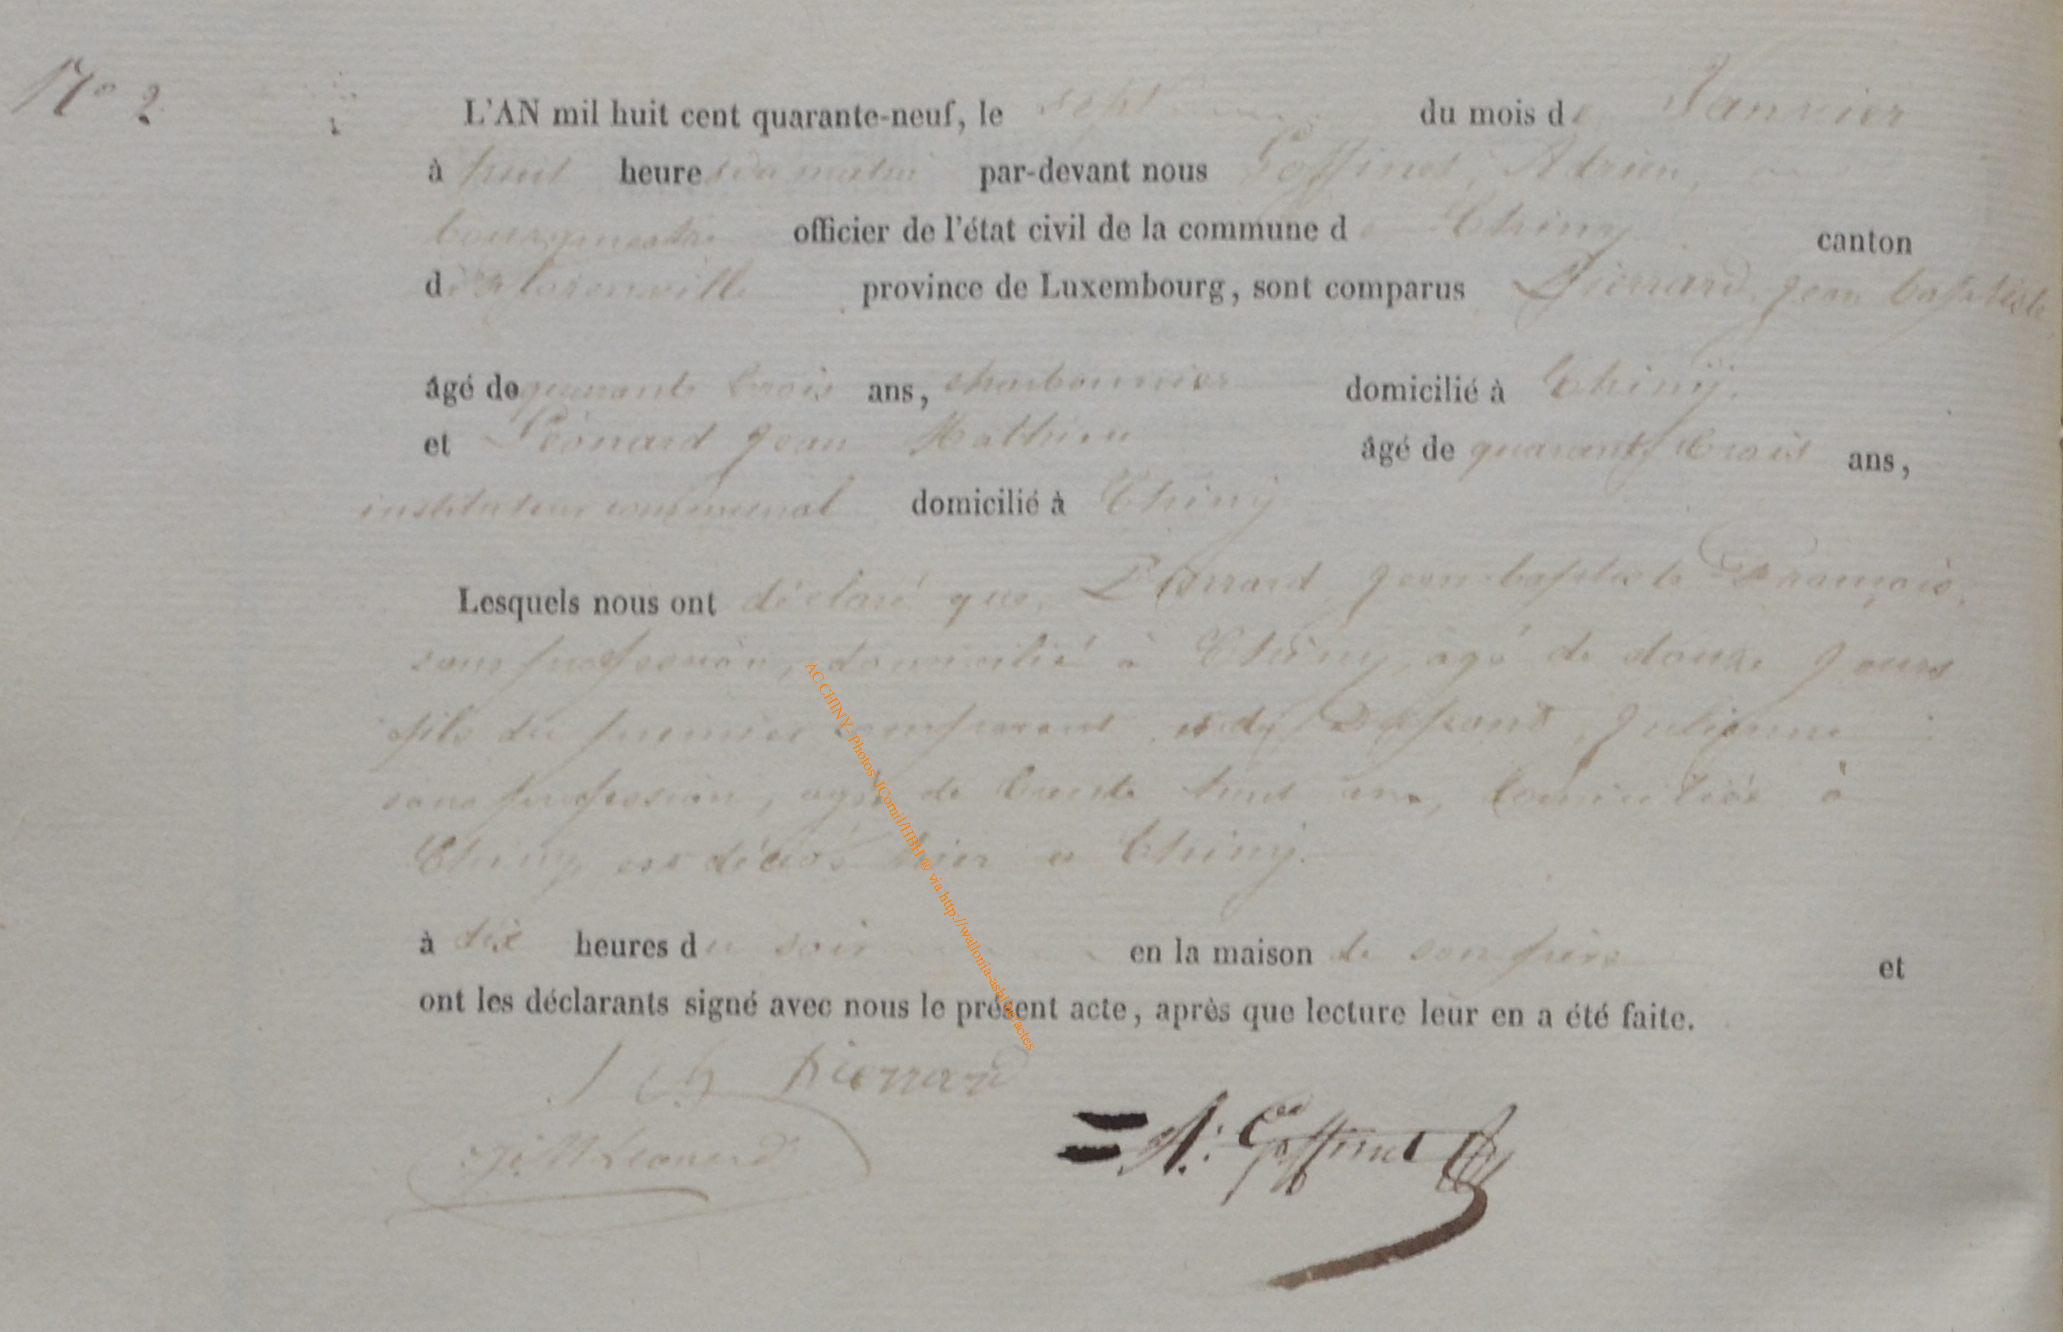 No 2
L'AN mil huit cent quarante-neuf, le sept du mois de Janvier
à huit heures du matin par-devant nous Goffinet, Adrien,
bourgmestre officier de l'état civil de la commune de Chiny canton
de florenville province de Luxembourg, sont comparus Pierrard, Jean baptiste
âgé de quarante trois ans, charbonnier domicilié à Chinÿ.
et Léonard Jean Mathieu âgé de quarante trois ans,
instituteur communal domicilié à Chinÿ
Lesquels nous ont déclaré que, Pierrard Jean-baptiste François,
sans profession, domicilié à Chiny, agé de douze jours
fils du premier comparant et de Dupont, Julienne
sans profession, agée de trente huit ans, domiciliée à
Chiny, est décédé hier a Chinÿ.
à dix heures du soir en la maison de son père et
ont les déclarants signé avec nous le présent acte, après que lecture leur en a été faite.
Pierrard
J. M Leonard
A. Goffinet
AC CHINY - Photos JCornil/TISH @ via http://wallonia-asbl.be/actes